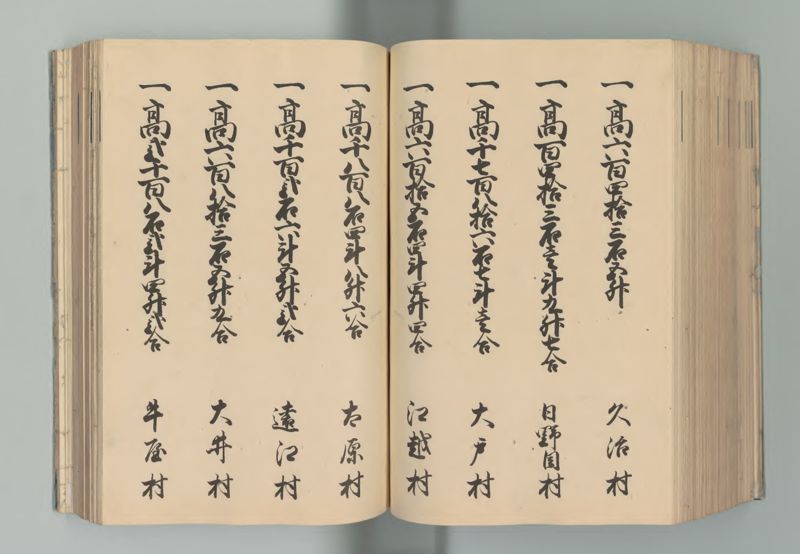 一高六百四拾三石五升 久治村
一高百四拾三石壱斗九升七合 日野目村
一高千七百八拾六石七斗壱合 大戸村
一高六百拾五石四斗四升四合 江越村
一高千八百八石四斗八升六合 古原村
一高千百弐石六斗五升弐合 遠江村
一高六百八拾三石五升九合 大井村
一高弐千百八石弐斗四升弐合 牛屋村